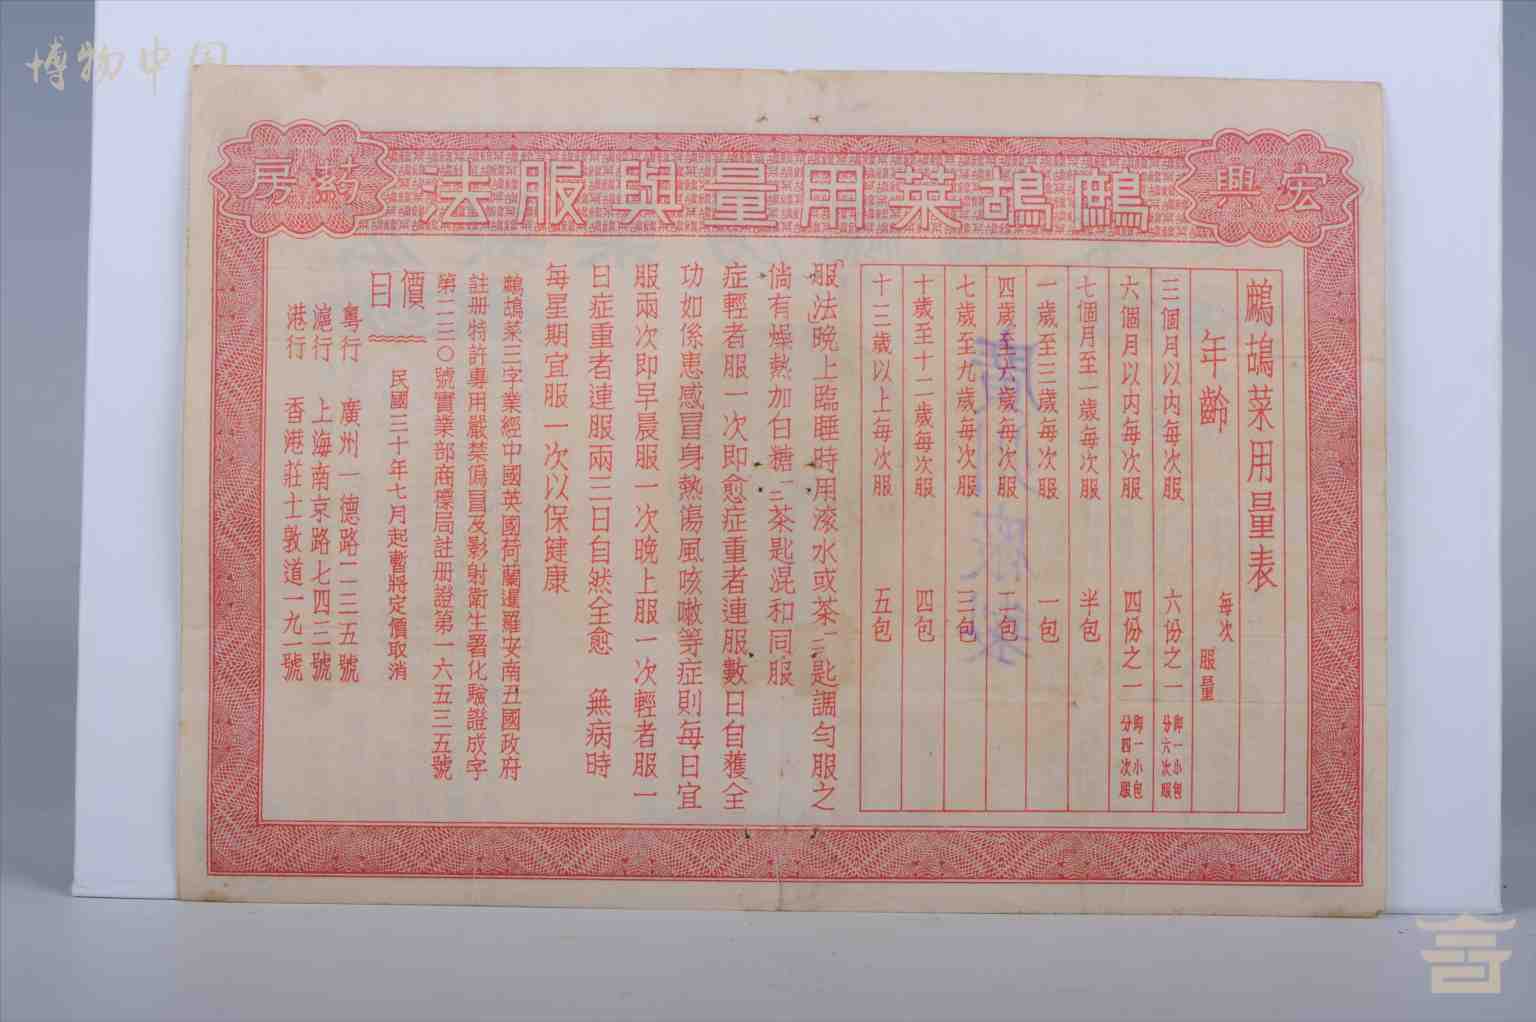 博物中国
宏興
藥房
鷓鴣菜用量與服法
鷓鴣菜用量表
年齡
每次服量
三個月以內每次服 六份之一 即一小包分六次服
六個月以內每次服 四份之一 即一小包分四次服
七個月至一歲每次服 半包
一歲至三歲每次服 一包
四歲至六歲每次服 二包
七歲至九歲每次服 三包
十歲至十二歲每次服 四包
十三歲以上每次服 五包
「服法」晚上臨睡時用滚水或茶一二匙調勻服之
倘有燥熱加白糖一二茶匙混和同服
症輕者服一次即愈症重者連服數日自獲全
功如係患感冒身熱傷風咳嗽等症則每日宜
服兩次即早晨服一次晚上服一次輕者服一
日症重者連服兩三日自然全愈 無病時
每星期宜服一次以保健康
鷓鴣菜三字業經中國英國荷蘭暹羅安南五國政府
註册特許專用嚴禁偽冒及影射衛生署化驗證成字
第二三〇號實業部商標局註册證第一六五三五號
價目
民國三十年七月起暫將定價取消
粵行 廣州一德路二三五號
滬行 上海南京路七四三號
港行 香港莊士敦道一九一號